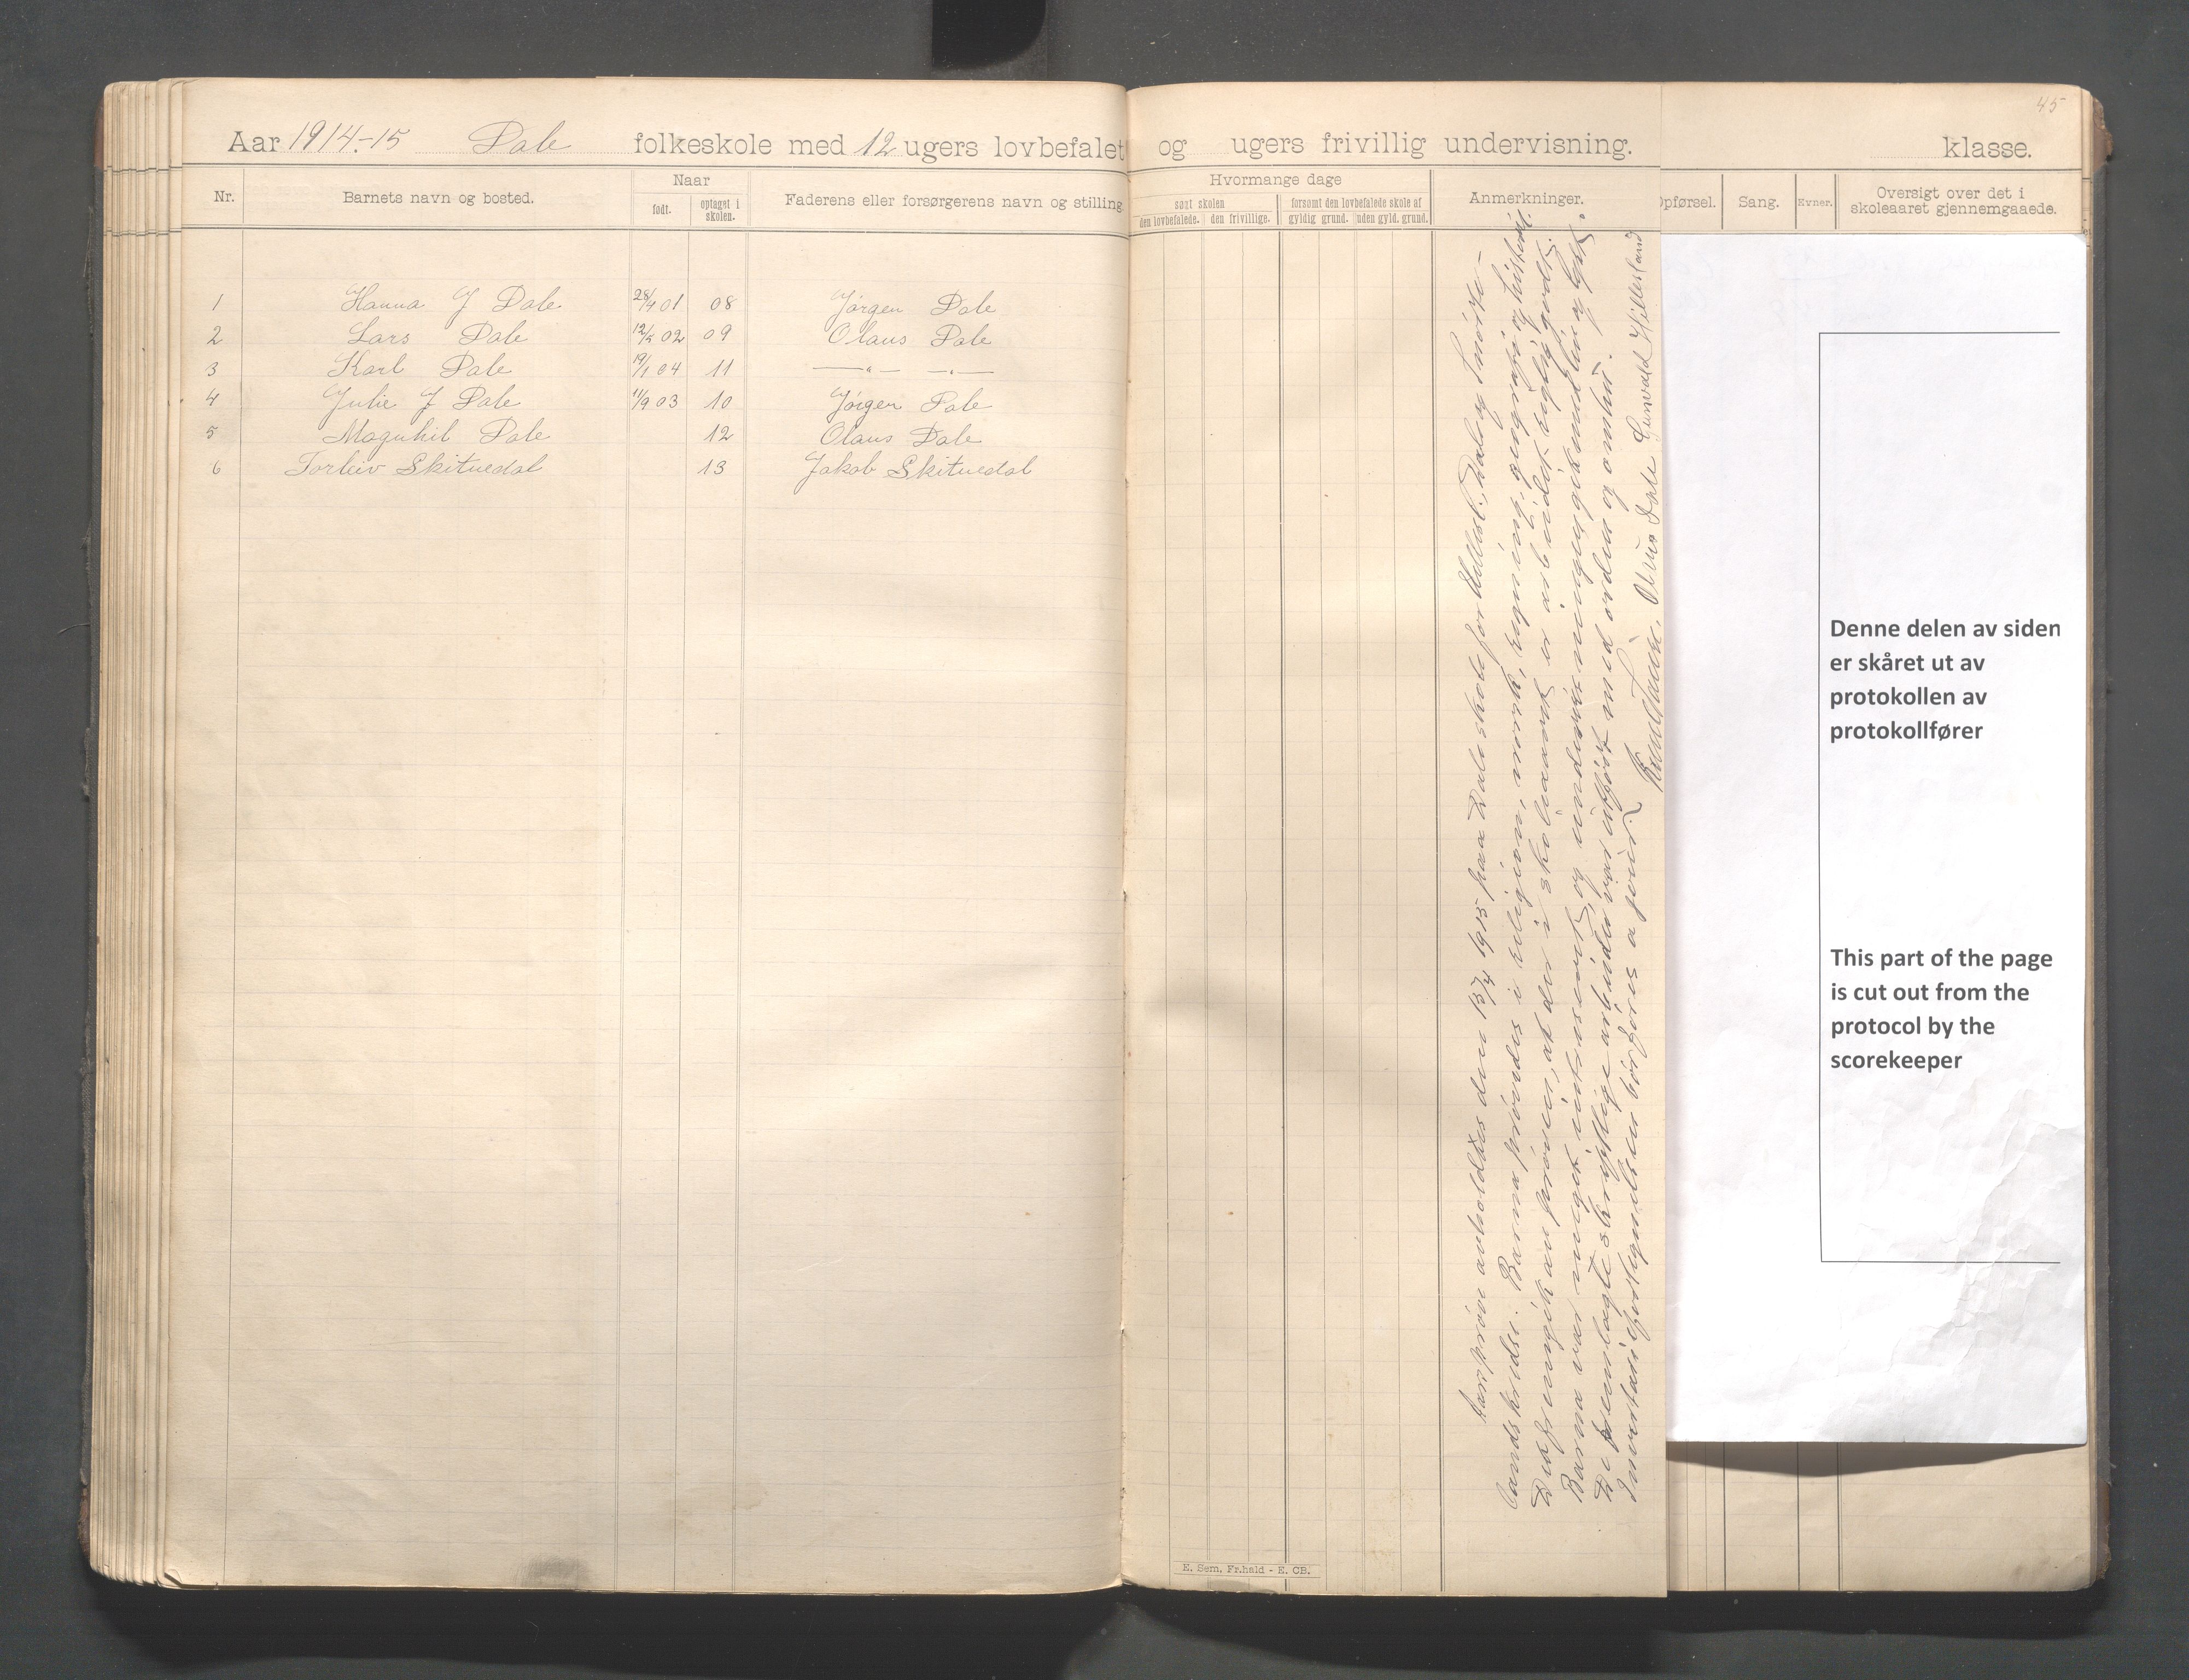 45
Aar 1914-15 Dale folkeskole med 12 ugers lovbefalet og ugers frivillig undervisning. klasse.
Nr.
Barnets navn og bosted.
Naar
født.
optaget i skolen.
Faderens eller forsørgerens navn og stilling
Hvormange dage
søgt skolen
den lovbefalede.
den frivillige.
forsømt den lovbefalede skole af
gyldig grund.
uden gyld. grund.
Anmerkninger.
Opførsel.
Sang.
Evner.
Oversigt over det i
skoleaaret gjennemgaaede.
1 Hanna J Dale 28/4 01 08 Jørgen Dale
2 Lars Dale 02 09 Olaus Dale
3 Karl Dale 19/1 04 11 —„— —„—
4 Julie J Dale 11/9 03 10 Jørgen Dale
5 Magnhil Dale 12 Olaus Dale
6 Torleiv Skitnedal 13 Jakob Skitnedal
Aarsprøve avholdtes den 15/4 1915 paa Dale skole for Dale og
landskredse. Barna prøvedes i religion, norsk, regning, geografi og historie.
Det fremgik av prøven, at der i skoleaaret er arbeidet rigtig godt.
Barna var meget interesseret, og undervisningen gik med liv og lyst.
De fremlagte skriftlige arbeider var utført med orden og omhu.
Inventariefortegnelsen bør føres a jour.
Dale Gunvald Hillesland
Denne delen av siden
er skåret ut av
protokollen av
protokollfører
This part of the page
is cut out from the
protocol by the
scorekeeper
E. Sem, Fr.hald - E. CB.